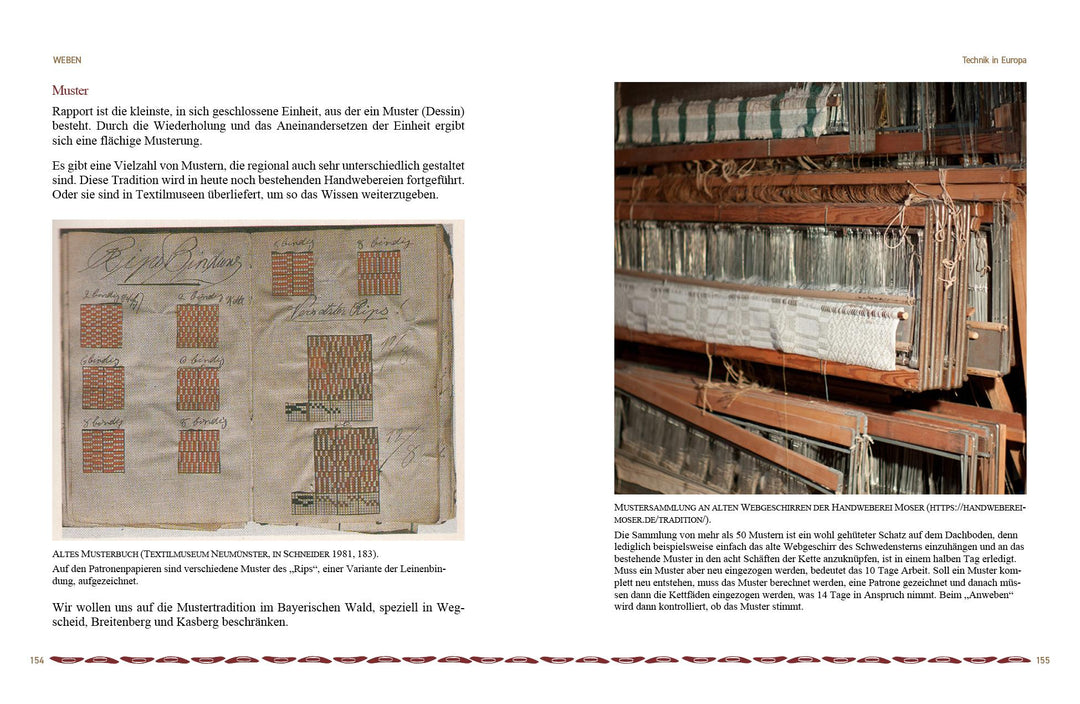 WEBEN
Muster
Rapport ist die kleinste, in sich geschlossene Einheit, aus der ein Muster (Dessin)
besteht. Durch die Wiederholung und das Aneinandersetzen der Einheit ergibt
sich eine flächige Musterung.
Es gibt eine Vielzahl von Mustern, die regional auch sehr unterschiedlich gestaltet
sind. Diese Tradition wird in heute noch bestehenden Handwebereien fortgeführt.
Oder sie sind in Textilmuseen überliefert, um so das Wissen weiterzugeben.
Rips Bindung.
6 bindig 8 bindig
2 bindig 2 bindig
6 bindig
8 bindig 8 bindig
Altes Musterbuch (Textilmuseum Neumünster, in Schneider 1981, 183).
Auf den Patronenpapieren sind verschiedene Muster des „Rips“, einer Variante der Leinenbin-
dung, aufgezeichnet.
Wir wollen uns auf die Mustertradition im Bayerischen Wald, speziell in Weg-
scheid, Breitenberg und Kasberg beschränken.
154
Technik in Europa
Mustersammlung an alten Webgeschirren der Handweberei Moser (https://handweberei-
moser.de/tradition/).
Die Sammlung von mehr als 50 Mustern ist ein wohl gehüteter Schatz auf dem Dachboden, denn
lediglich beispielsweise einfach das alte Webgeschirr des Schwedensterns einzuhängen und an das
bestehende Muster in den acht Schäften der Kette anzuknüpfen, ist in einem halben Tag erledigt.
Muss ein Muster aber neu eingezogen werden, bedeutet das 10 Tage Arbeit. Soll ein Muster kom-
plett neu entstehen, muss das Muster berechnet werden, eine Patrone gezeichnet und danach müs-
sen dann die Kettfäden eingezogen werden, was 14 Tage in Anspruch nimmt. Beim „Anweben“
wird dann kontrolliert, ob das Muster stimmt.
155